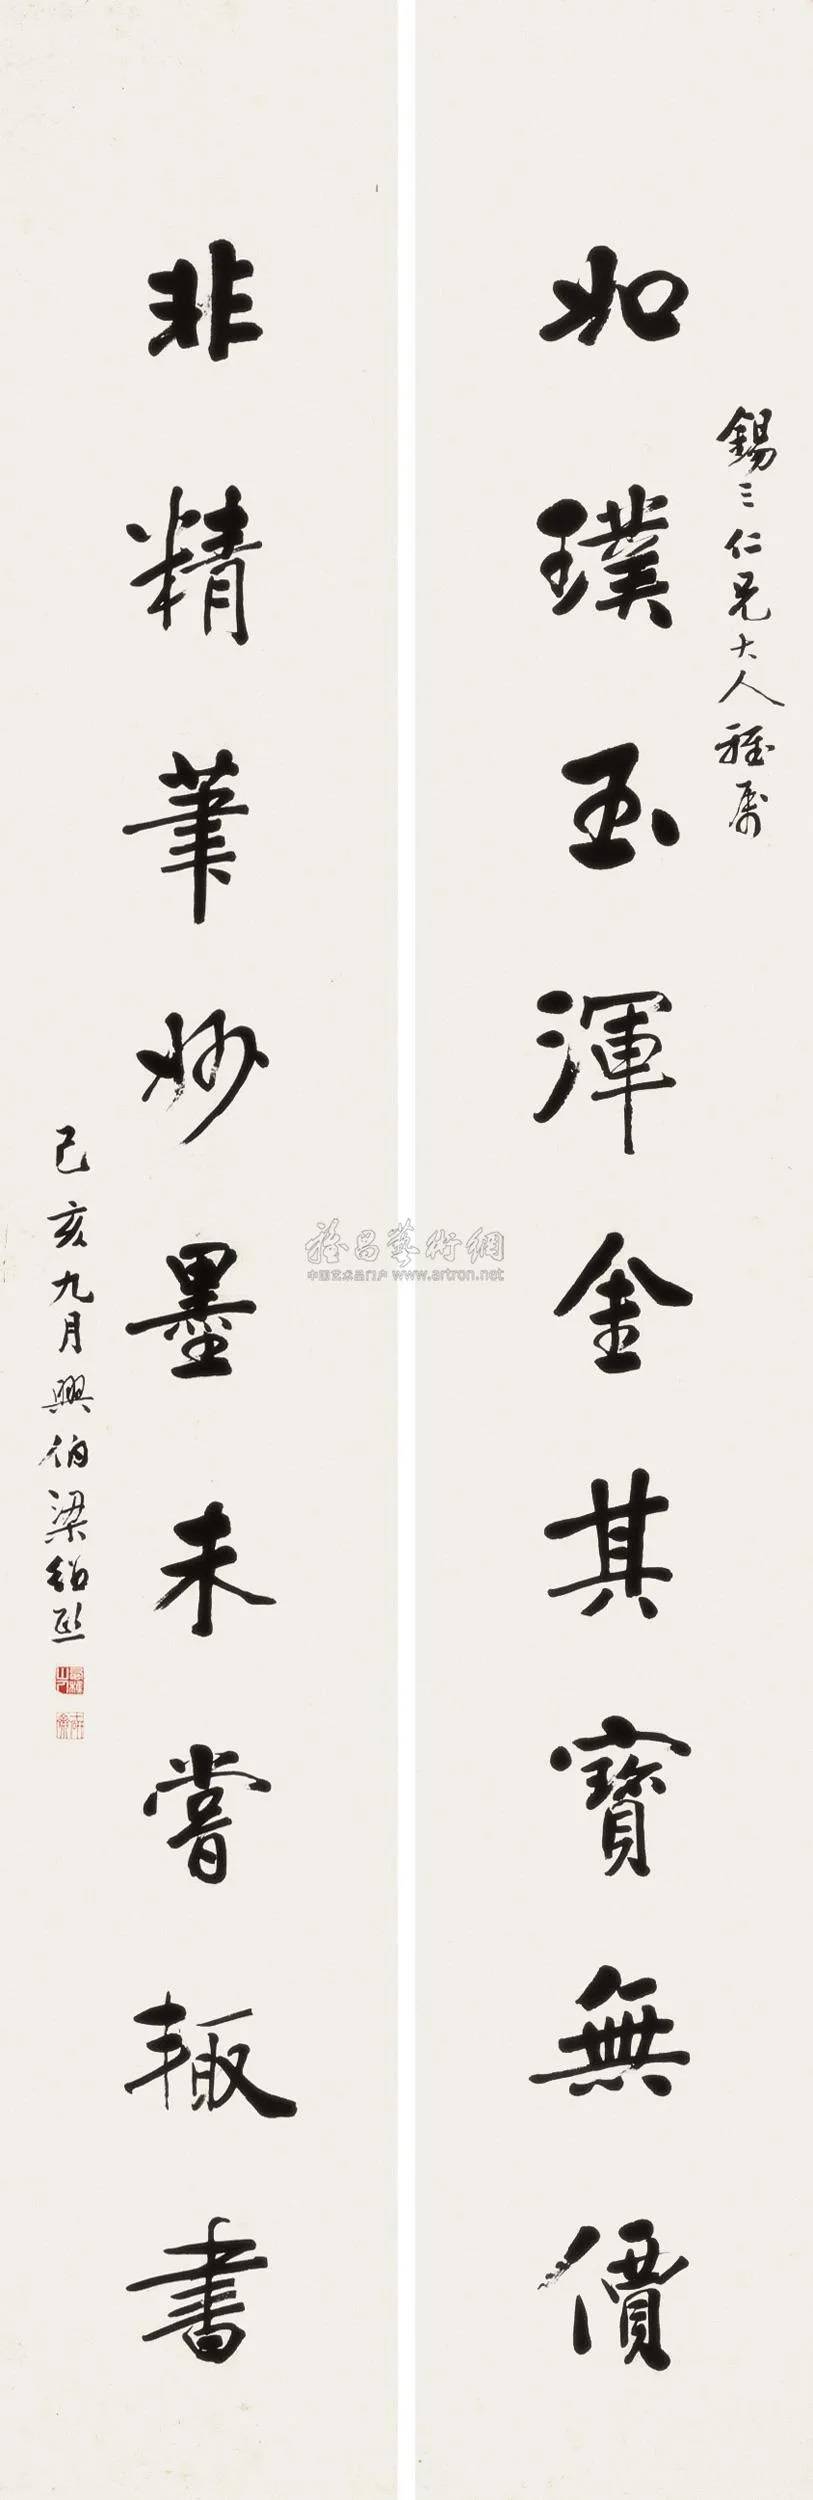 錫三仁兄大人雅属
如璞玉渾金其寶無價
非精筆妙墨未嘗輙書
己亥九月興伯梁紹熙
雅昌藝術網
中国艺术品门户 www.artron.net